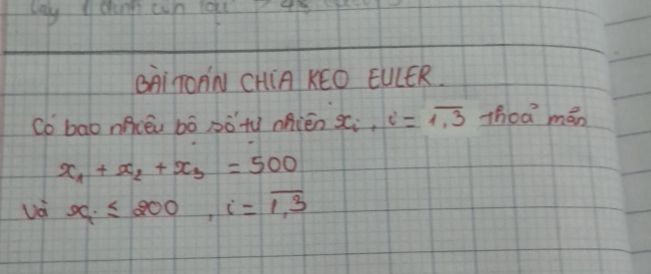 BÀI TOÁN CHIA KẸO EULER.
Có bao nhiêu bộ số tự nhiên xᵢ, i = \overline{1,3} thoả mãn
x₁ + x₂ + x₃ = 500
Và xᵢ ≤ 200, i = \overline{1,3}